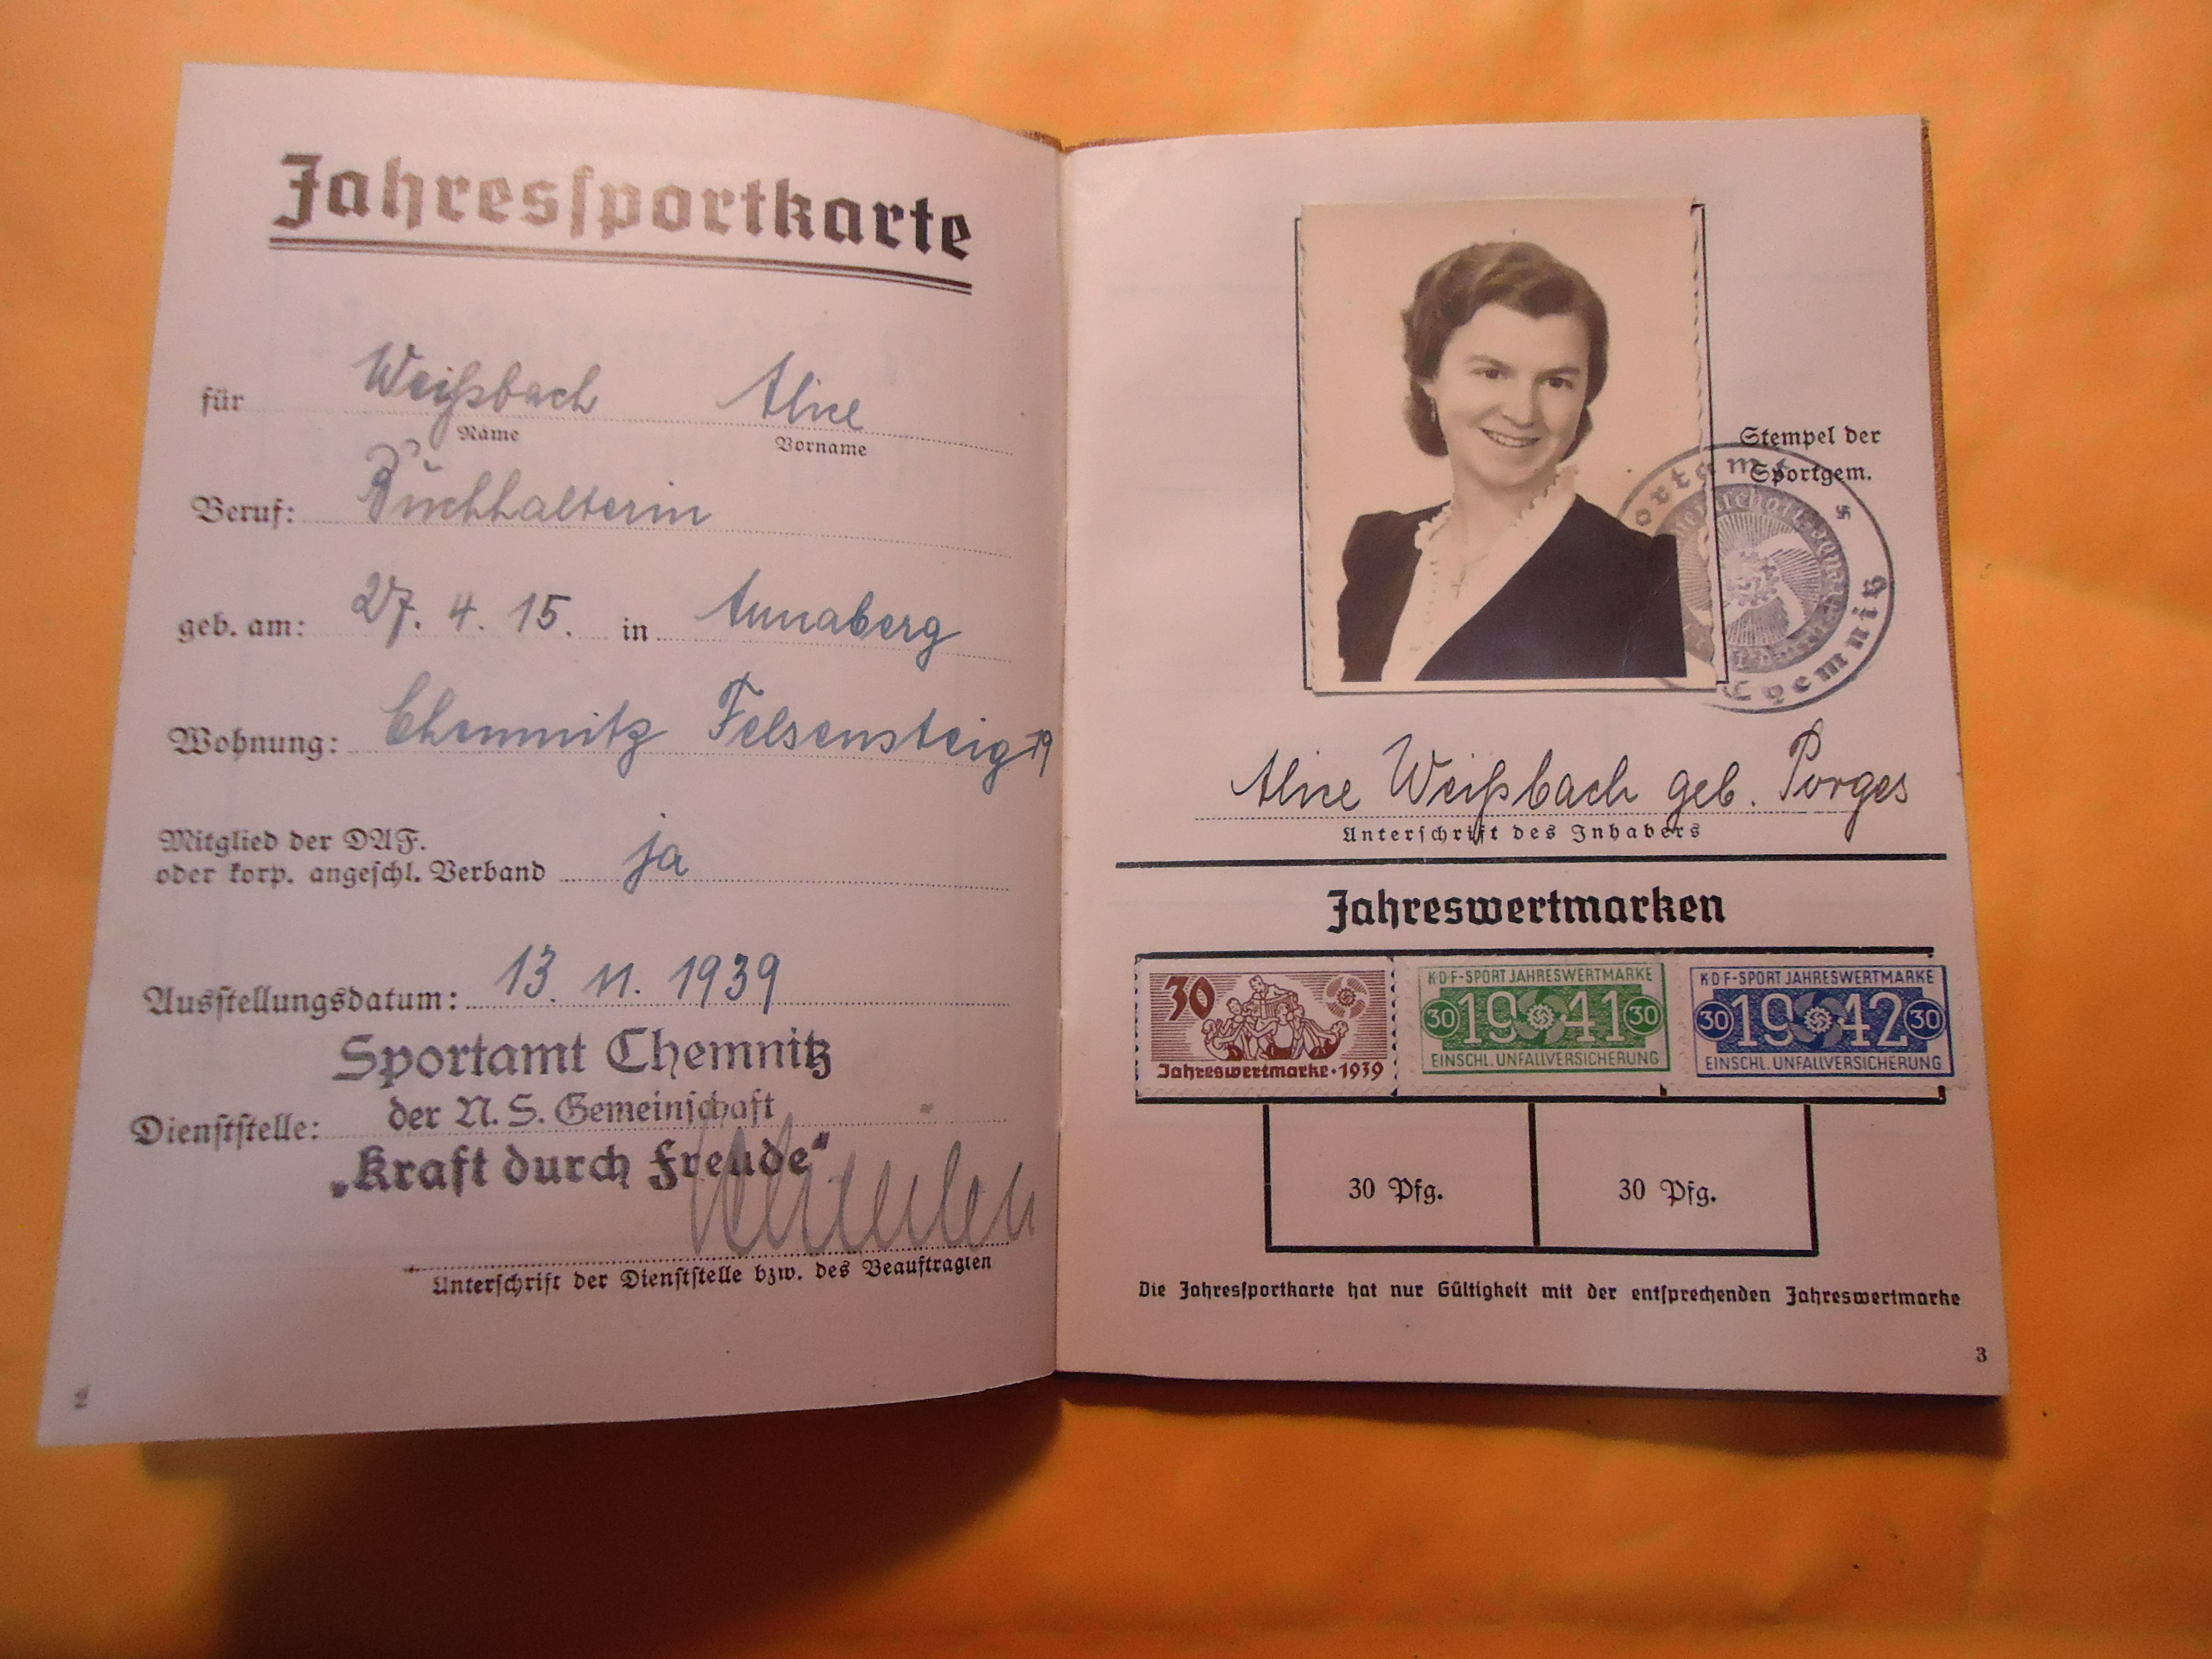 Jahressportkarte
für Weißbach Alice
Name Vorname
Beruf: Buchhalterin
geb. am: 27. 4. 15. in Annaberg
Wohnung: Chemnitz Felsensteig 19
Mitglied der DAF.
oder korp. angeschl. Verband ja
Ausstellungsdatum: 13. 11. 1939
Sportamt Chemnitz
Dienststelle: der N. S. Gemeinschaft
„Kraft durch Freude“
Unterschrift der Dienststelle bzw. des Beauftragten
2
Stempel der
Sportgem.
Chemnitz
Alice Weißbach geb. Porges
Unterschrift des Inhabers
Jahreswertmarken
30
Jahreswertmarke · 1939
KDF-SPORT JAHRESWERTMARKE
30 19 41 30
EINSCHL. UNFALLVERSICHERUNG
KDF-SPORT JAHRESWERTMARKE
30 19 42 30
EINSCHL. UNFALLVERSICHERUNG
30 Pfg. 30 Pfg.
Die Jahressportkarte hat nur Gültigkeit mit der entsprechenden Jahreswertmarke
3